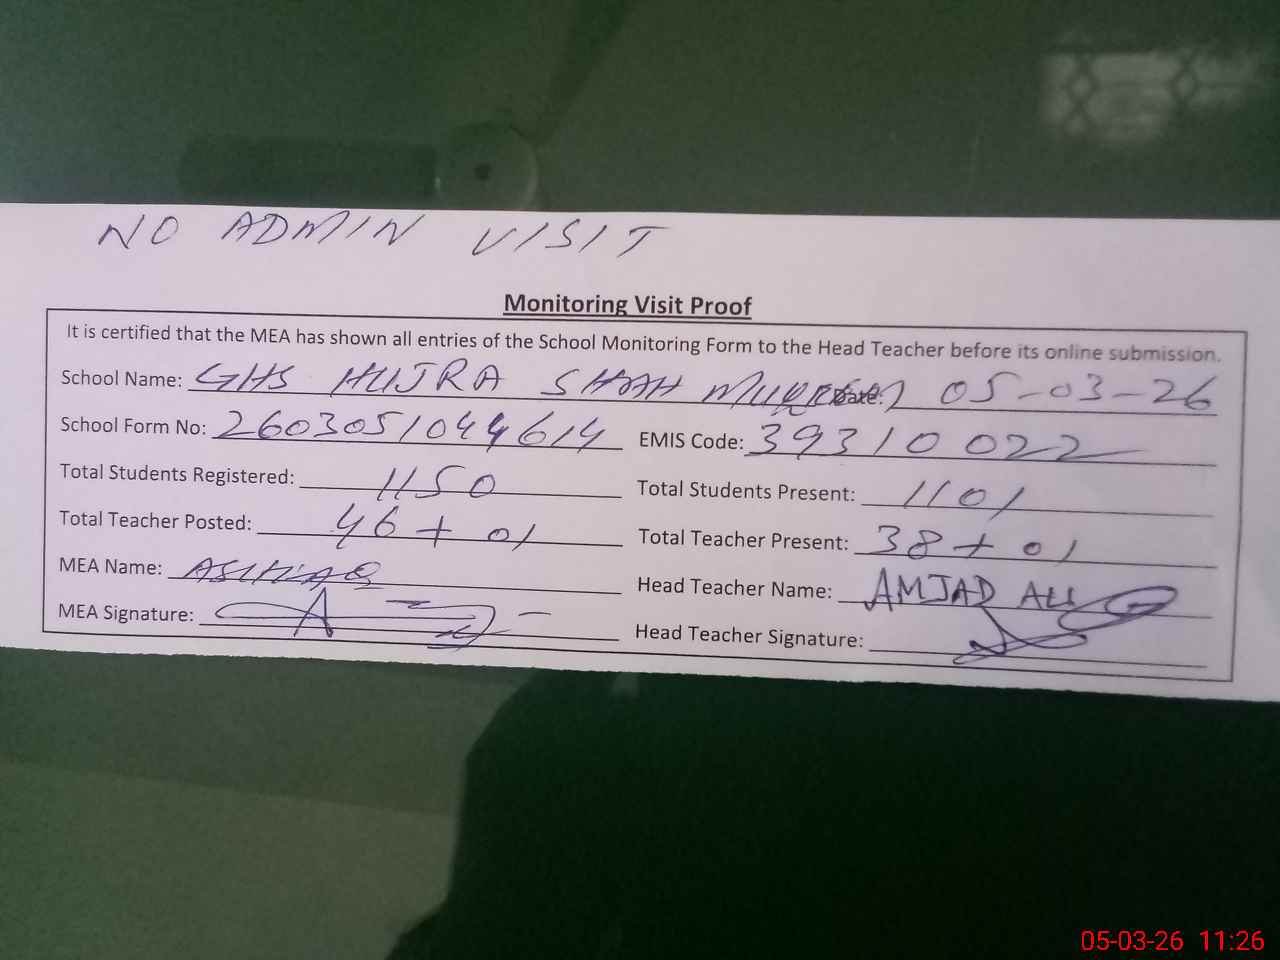 NO ADMIN VISIT
Monitoring Visit Proof
It is certified that the MEA has shown all entries of the School Monitoring Form to the Head Teacher before its online submission.
School Name: GHS HUJRA SHAH MUQEEM Date: 05-03-26
School Form No: 2603051044614 EMIS Code: 39310022
Total Students Registered: 1150 Total Students Present: 1101
Total Teacher Posted: 46 + 01 Total Teacher Present: 38 + 01
MEA Name: ASHFAQ Head Teacher Name: AMJAD ALI
MEA Signature: Head Teacher Signature:
05-03-26 11:26